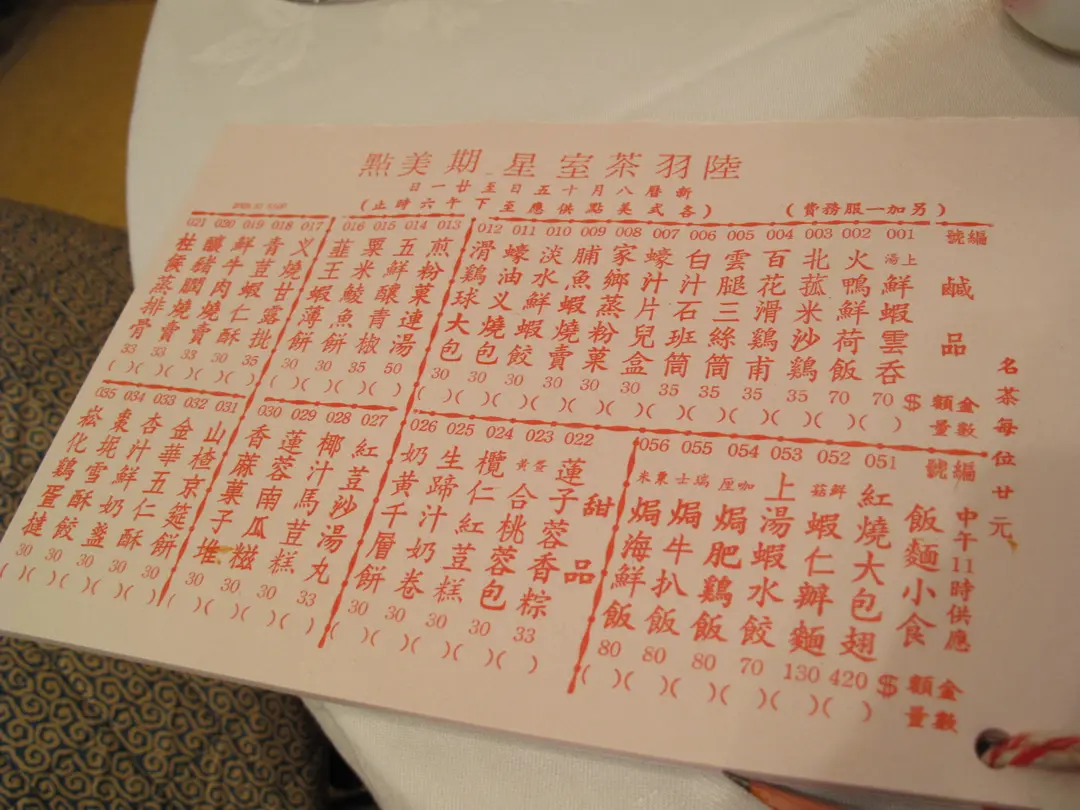 陸羽茶室星期美點
新曆八月十五日至廿一日
(各式美點供應至下午六時止)
(另加一服務費)
名茶每位廿元
編號 鹹品 金額 數量
001 上湯鮮蝦雲吞 $70 ( )
002 火鴨鮮荷飯 70 ( )
003 北菰米沙鷄 35 ( )
004 百花滑鷄甫 35 ( )
005 雲腿三絲筒 35 ( )
006 白汁石班筒 35 ( )
007 蠔汁片兒盒 30 ( )
008 家鄉蒸粉菓 30 ( )
009 脯魚蝦燒賣 30 ( )
010 淡水鮮蝦餃 30 ( )
011 蠔油义燒包 30 ( )
012 滑鷄球大包 30 ( )
013 煎粉菓連湯 50 ( )
014 五鮮釀青椒 35 ( )
015 粟米鯪魚餅 30 ( )
016 韮王蝦薄餅 30 ( )
017 义燒甘露批 35 ( )
018 青荳蝦仁酥 30 ( )
019 鮮牛肉燒賣 33 ( )
020 釀豬膶燒賣 33 ( )
021 柱候蒸排骨 33 ( )
編號 飯麵小食 中午11時供應 金額 數量
051 紅燒大包翅 $420 ( )
052 鮮菇蝦仁辦麵 130 ( )
053 上湯蝦水餃 70 ( )
054 咖喱焗肥鷄飯 80 ( )
055 瑞士焗牛扒飯 80 ( )
056 粟米焗海鮮飯 80 ( )
甜品
022 蓮子蓉香粽 33 ( )
023 蛋黃合桃蓉包 30 ( )
024 欖仁紅荳糕 30 ( )
025 生蹄汁奶卷 30 ( )
026 奶黄千層餅 30 ( )
027 紅荳沙湯丸 33 ( )
028 椰汁馬荳糕 30 ( )
029 蓮蓉南瓜糍 30 ( )
030 香蔴菓子堆 30 ( )
031 山楂京筵餅 30 ( )
032 金華五仁酥 30 ( )
033 杏汁鮮奶盞 30 ( )
034 棗坭雪酥餃 30 ( )
035 崧化鷄蛋撻 30 ( )